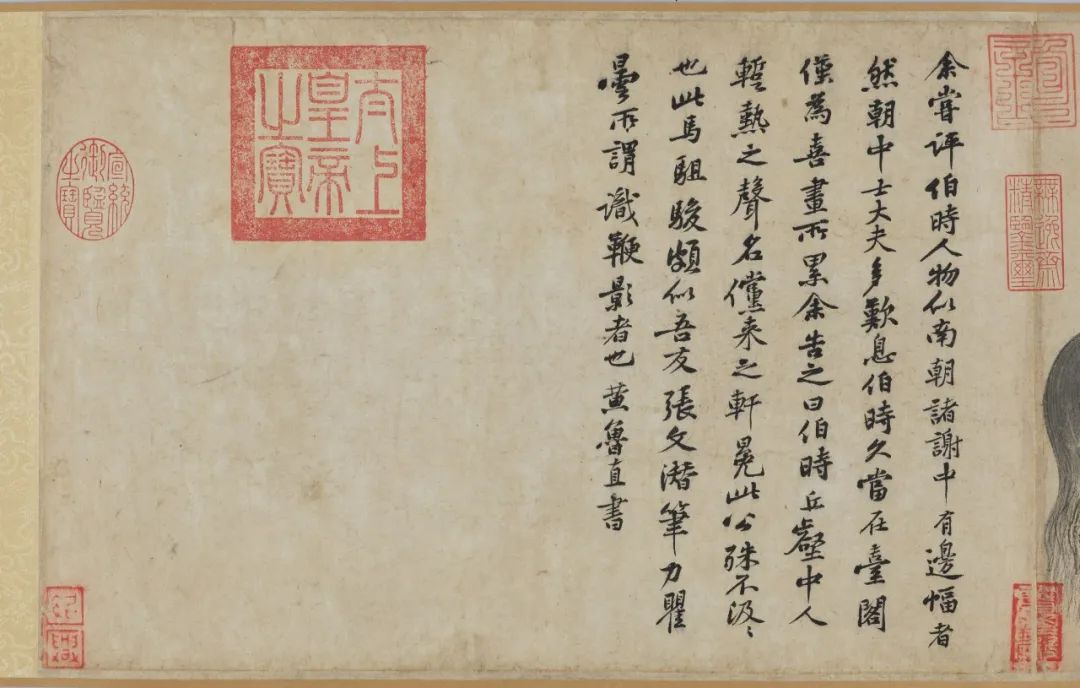 余嘗評伯時人物似南朝諸謝中有邊幅者
然朝中士大夫多歎息伯時久當在臺閣
僅為喜畫所累余告之曰伯時丘壑中人
暫熱之聲名儻来之軒冕此公殊不汲〻
也此馬駔駿頗似吾友張文潜筆力瞿
曇所謂識鞭影者也黄魯直書
太上
皇帝
之寶
宣統
御覽
之寶